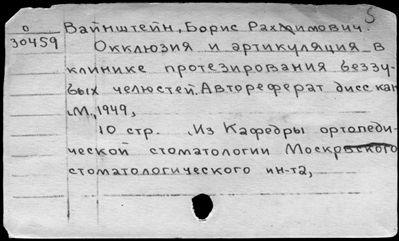 5
0 Вайнштейн, Борис Рахмимович.
30459 Окклюзия и артикуляция в
клинике протезирования беззу-
бых челюстей. Автореферат дисс кан
М., 1949,
10 стр. Из Кафедры ортопеди-
ческой стоматологии Московского
стоматологического ин-та,